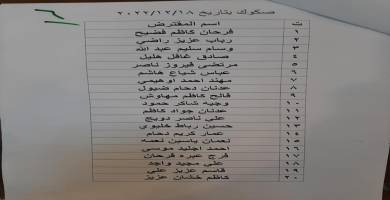 صكوك بتاريخ ٢٠٢٢/١٢/١٨
ت اسم المقترض
١ فرحان كاظم فضيح
٢ رباب عزيز راضي
٣ وسام سليم عبد الله
٤ صادق غافل هليل
٥ مرتضى فيروز ناصر
٦ عباس شياع هاشم
٧ مهند احمد اوهيمي
٨ عدنان دحام ضيول
٩ فالح كاظم مهاوش
١٠ وجيه شاكر حمود
١١ عدنان جواد كاظم
١٢ علي ناصر دويج
١٣ حسين رباط خليوي
١٤ عمار كريم دحام
١٥ نعمان ياسين نعمه
١٦ احمد اجليد موسى
١٧ فرج عبره فرحان
١٨ علي مجيد واجد
١٩ قاسم عزيز علي
٢٠ كاظم خشان عزيز